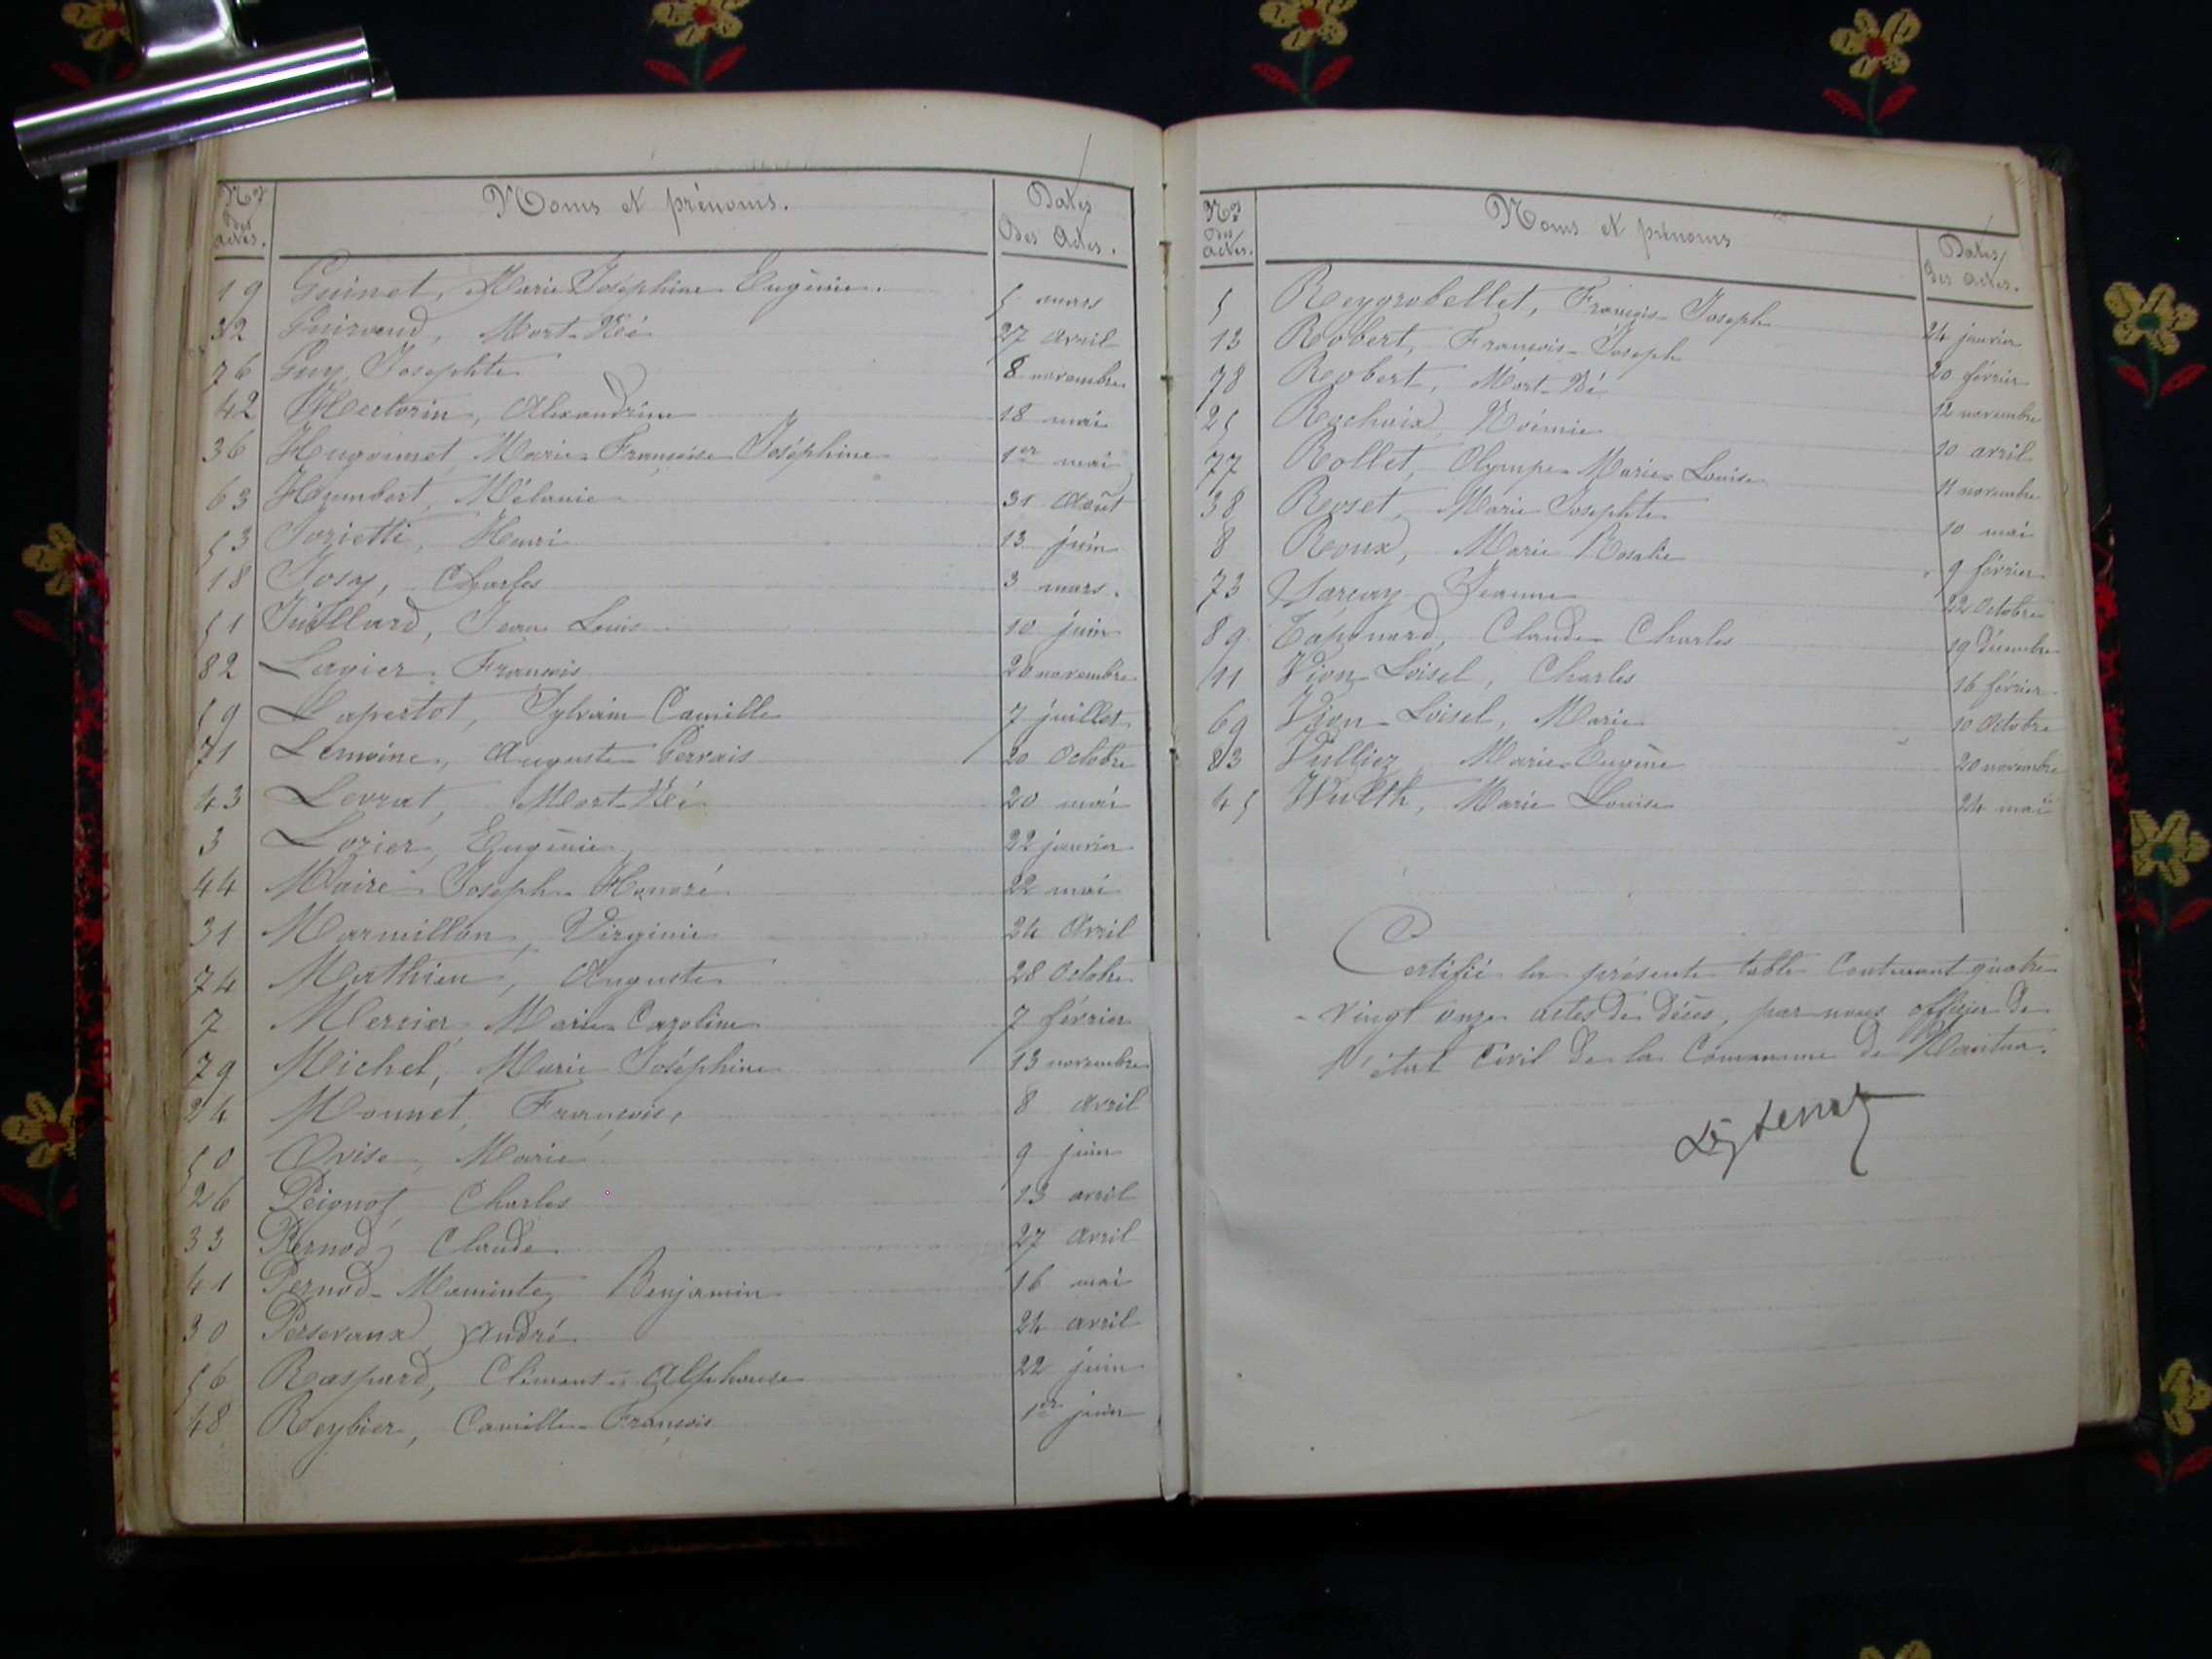 Nos des actes. Noms et prénoms. Dates des Actes.
19 Guinet, Marie Joséphine Eugénie. 5 mars
32 Guiraud, Mort-Né 27 avril
76 Guy, Josephte 8 novembre
42 Hectorin, Alexandrine 18 mai
36 Hugonnet, Marie Françoise Joséphine 1er mai
63 Humbert, Mélanie 31 Août
53 Jorietti, Henri 13 juin
18 Josy, Charles 3 mars.
51 Juillard, Jean Louis 10 juin
82 Lagier, François 20 novembre
59 Lapertot, Sylvain Camille 7 juillet
71 Lemoine, Auguste Gervais 20 Octobre
43 Levrat, Mort-Né 20 mai
3 Lozier, Eugénie 22 janvier
44 Maire Joseph Honoré 22 mai
31 Marmillon, Virginie 24 Avril
74 Mathieu, Auguste 28 Octobre
7 Mercier, Marie Caroline 7 février
79 Michel, Marie Joséphine 13 novembre
24 Monnet, François, 8 avril
50 Ovise, Marie 9 juin
26 Peignot, Charles 13 avril
33 Pernod, Claude 27 avril
41 Pernod-Maminte, Benjamin 16 mai
30 Persevaux, André 24 avril
56 Raspard, Clément-Alphonse 22 juin
48 Reybier, Camille François 1er juin
Nos des actes. Noms et prénoms Dates des actes.
5 Reygrobellet, François Joseph 24 janvier
13 Robert, François-Joseph 20 février
78 Robert, Mort-Né 12 novembre
25 Rochaix, Noémie 10 avril
77 Rollet, Olympe Marie Louise 11 novembre
38 Roset, Marie Josephte 10 mai
8 Roux, Marie Rosalie 9 février
73 Sarcey, Jeanne 22 Octobre
89 Taponard, Claude Charles 19 décembre
11 Vion-Loisel, Charles 16 février
69 Vion-Loisel, Marie 10 Octobre
83 Vulliez, Marie-Eugène 20 novembre
45 Wulth, Marie Louise 24 mai
Certifié la présente table Contenant quatre
-vingt onze actes de décès, par nous officier de
l'état Civil de la Commune de Nantua.